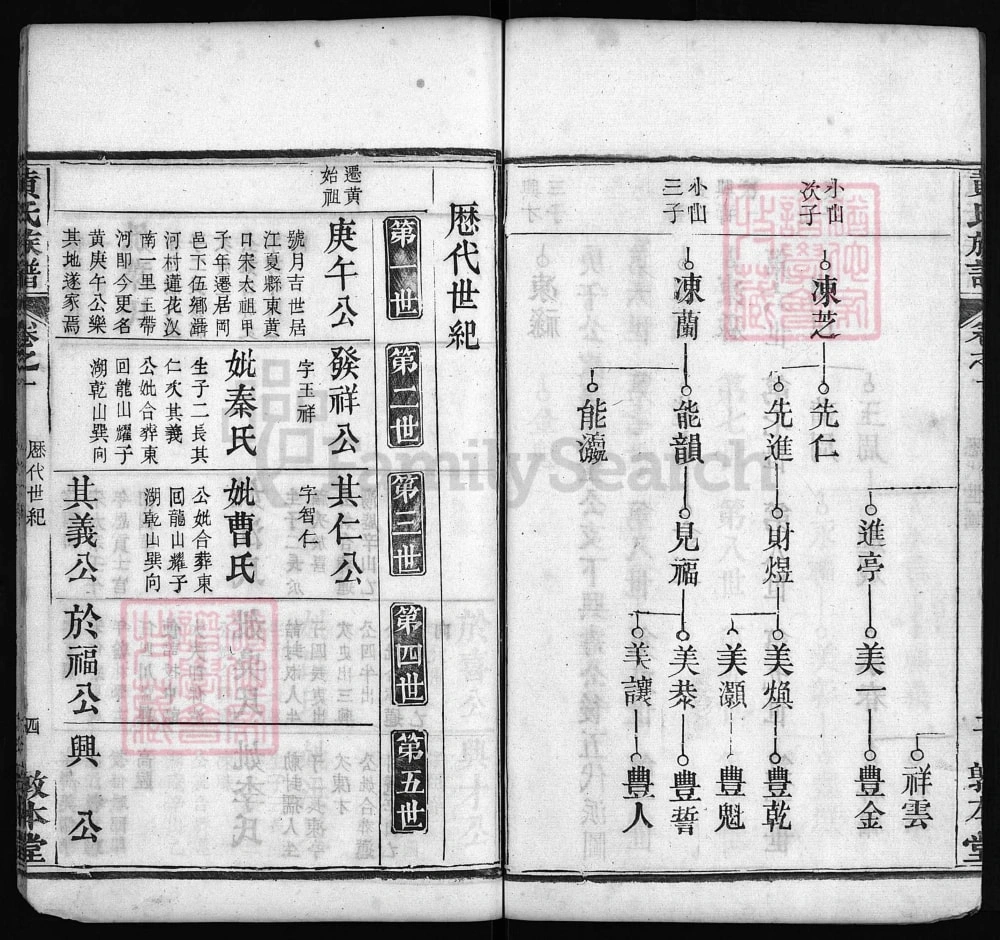 小山次子
小山三子
祥雲
進亭
美一
豐金
凍芝
先仁
先進
財煜
美煥
豐乾
美灝
豐魁
凍蘭
能韻
見福
美恭
豐誓
美讓
豐人
能瀛
歷代世紀
第一世
第二世
第三世
第四世
第五世
遷黃始祖
庚午公
號月吉世居
江夏縣東黃
口宋太祖甲
子年遷居岡
邑下伍鄉灄
河村蓮花汊
南一里玉帶
河即今更名
黃庚午公樂
其地遂家焉
發祥公
字玉祥
妣秦氏
生子二長其
仁次其義
公妣合葬東
回龍山耀子
湖乾山巽向
其仁公
字智仁
妣曹氏
公妣合葬東
回龍山耀子
湖乾山巽向
其義公
於福公
興公
黃氏族譜
卷之一
歷代世紀
四
敦本堂
FamilySearch